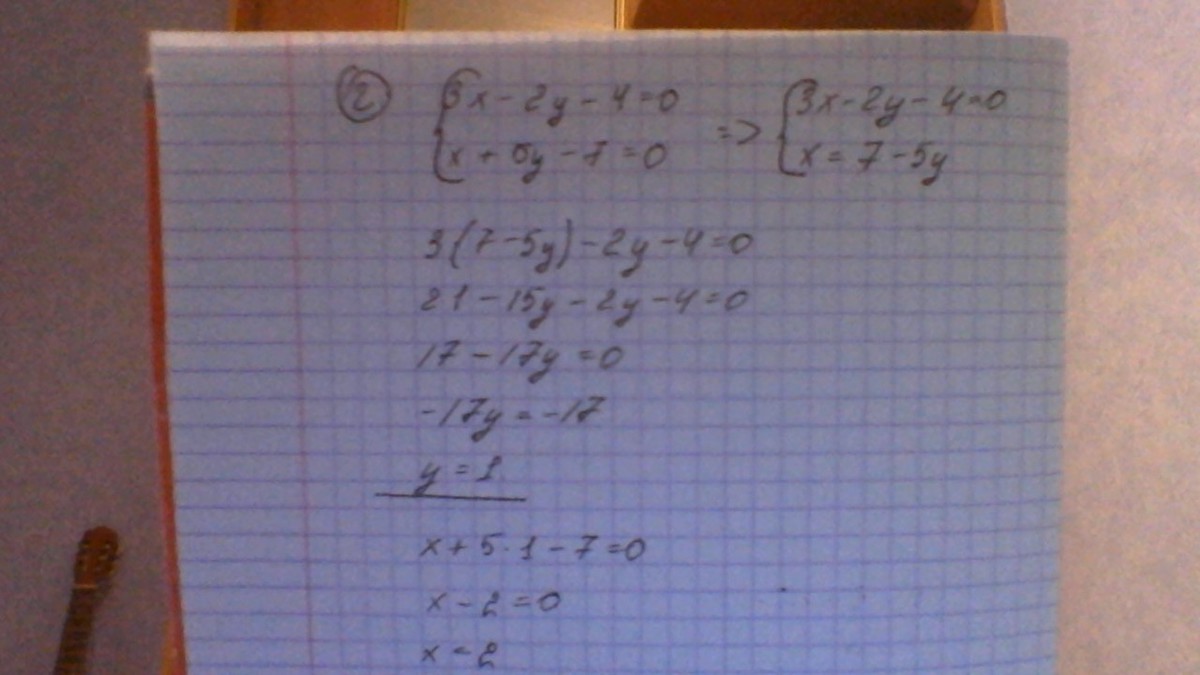 ② {3x - 2y - 4 = 0 => {3x - 2y - 4 = 0
{x + 5y - 7 = 0 {x = 7 - 5y
3(7 - 5y) - 2y - 4 = 0
21 - 15y - 2y - 4 = 0
17 - 17y = 0
-17y = -17
y = 1
x + 5 · 1 - 7 = 0
x - 2 = 0
x = 2